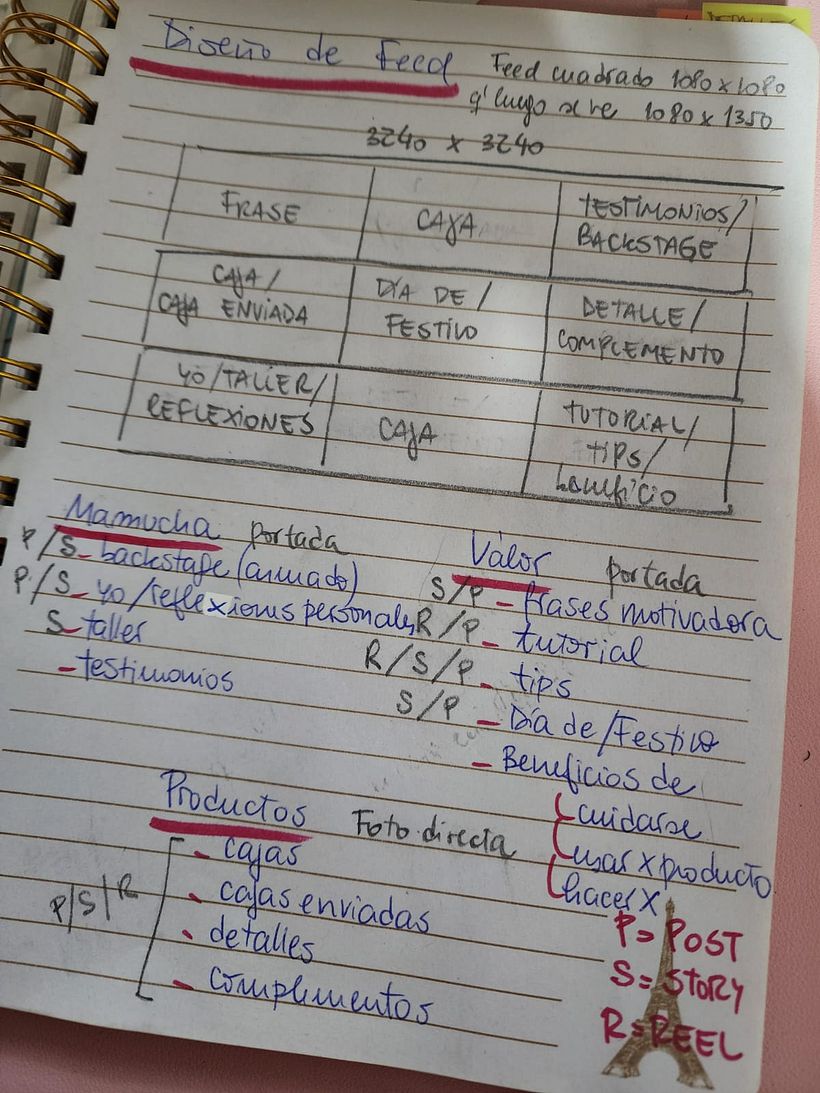 Diseño de Feed
Feed cuadrado 1080 x 1080
q' luego se ve 1080 x 1350
3240 x 3240
FRASE
CAJA
TESTIMONIOS/
BACKSTAGE
CAJA/
CAJA ENVIADA
DÍA DE/
FESTIVO
DETALLE/
COMPLEMENTO
YO/TALLER/
REFLEXIONES
CAJA
TUTORIAL/
TIPS/
beneficio
Mamucha portada
P/S - backstage (armado)
P/S - yo/reflexiones personales
S - taller
- testimonios
Valor portada
S/P - frases motivadora
R/P - tutorial
R/S/P - tips
S/P - Día de/Festivo
- Beneficios de
cuidarse
usar x producto
hacer x
Productos Foto directa
P/S/R
- cajas
- cajas enviadas
- detalles
- complementos
P = POST
S = STORY
R = REEL